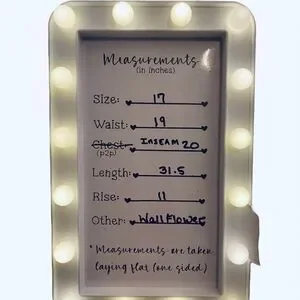 Measurements
(in inches)
Size: 17
Waist: 19
Chest: Inseam 20
(p2p)
Length: 31.5
Rise: 11
Other: Wallflower
*Measurements are taken
laying flat (one sided.)